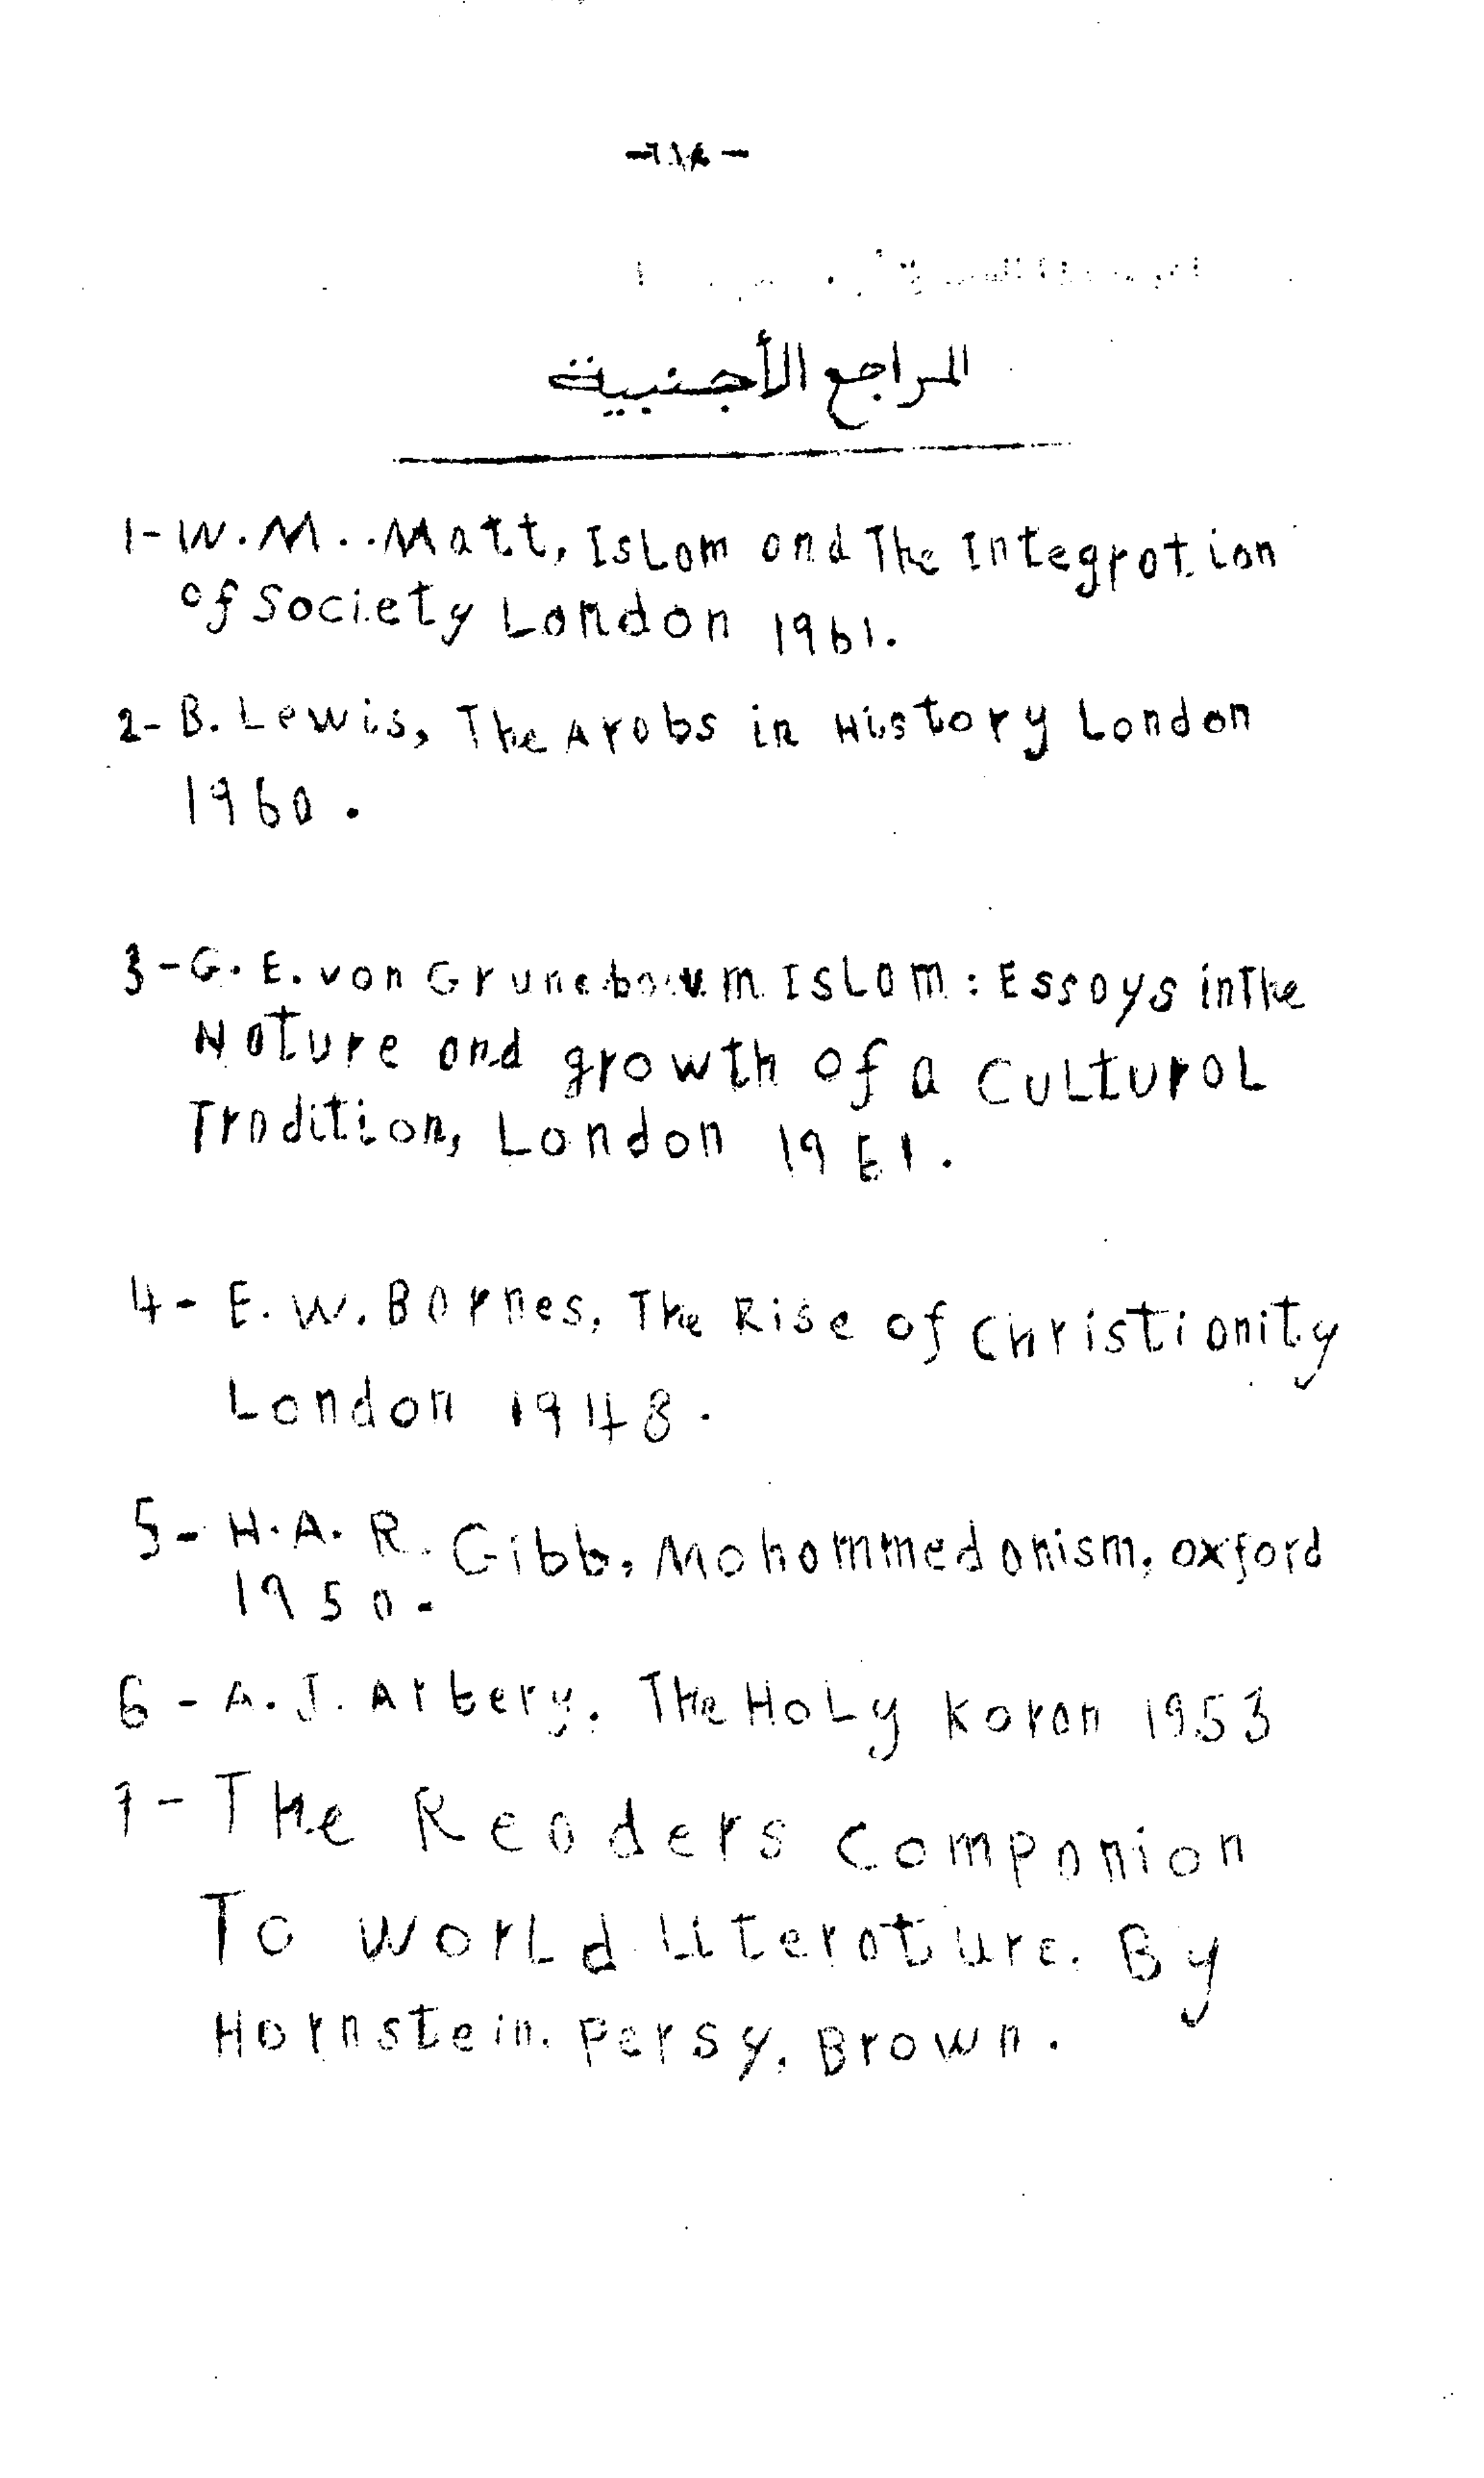 المراجع الأجنبية
1- W. M.. Matt, Islam and The Integration
of Society London 1961.
2- B. Lewis, The Arabs in History London
1960.
3- G. E. von Grunebaum Islam: Essays in The
Nature and growth of a Cultural
Tradition, London 1951.
4- E. W. Barnes, The Rise of Christianity
London 1948.
5- H. A. R. Gibb, Mohammedanism, oxford
1950.
6- A. J. Arbery. The Holy Koran 1953
7- The Readers Companion
To World Literature. By
Hornstein. Persy. Brown.